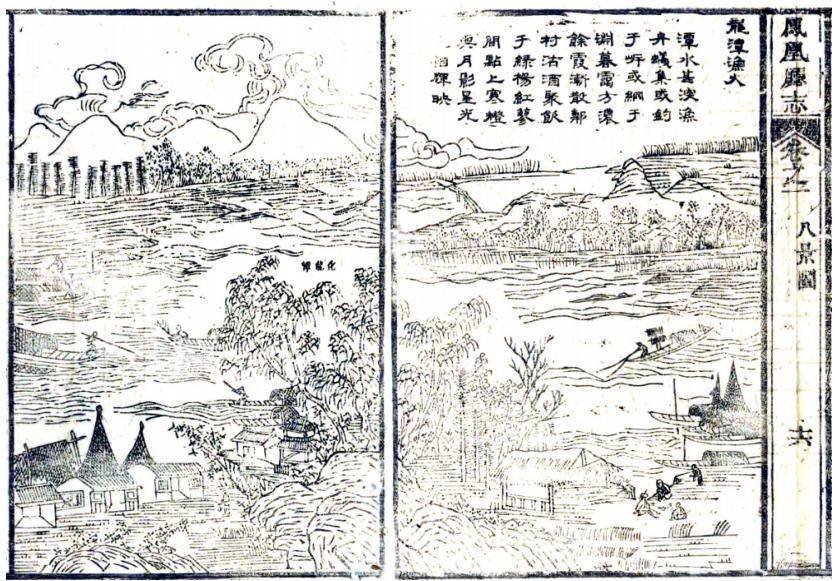 鳳凰廳志
卷之一
八景圖
十六
龍潭漁火
潭水甚深漁
舟蟻集或釣
于岍或網于
淵暮靄方濃
餘霞漸散鄰
村沽酒聚飲
于綠楊紅蓼
間點上寒燈
與月影星光
相輝映
化龍潭